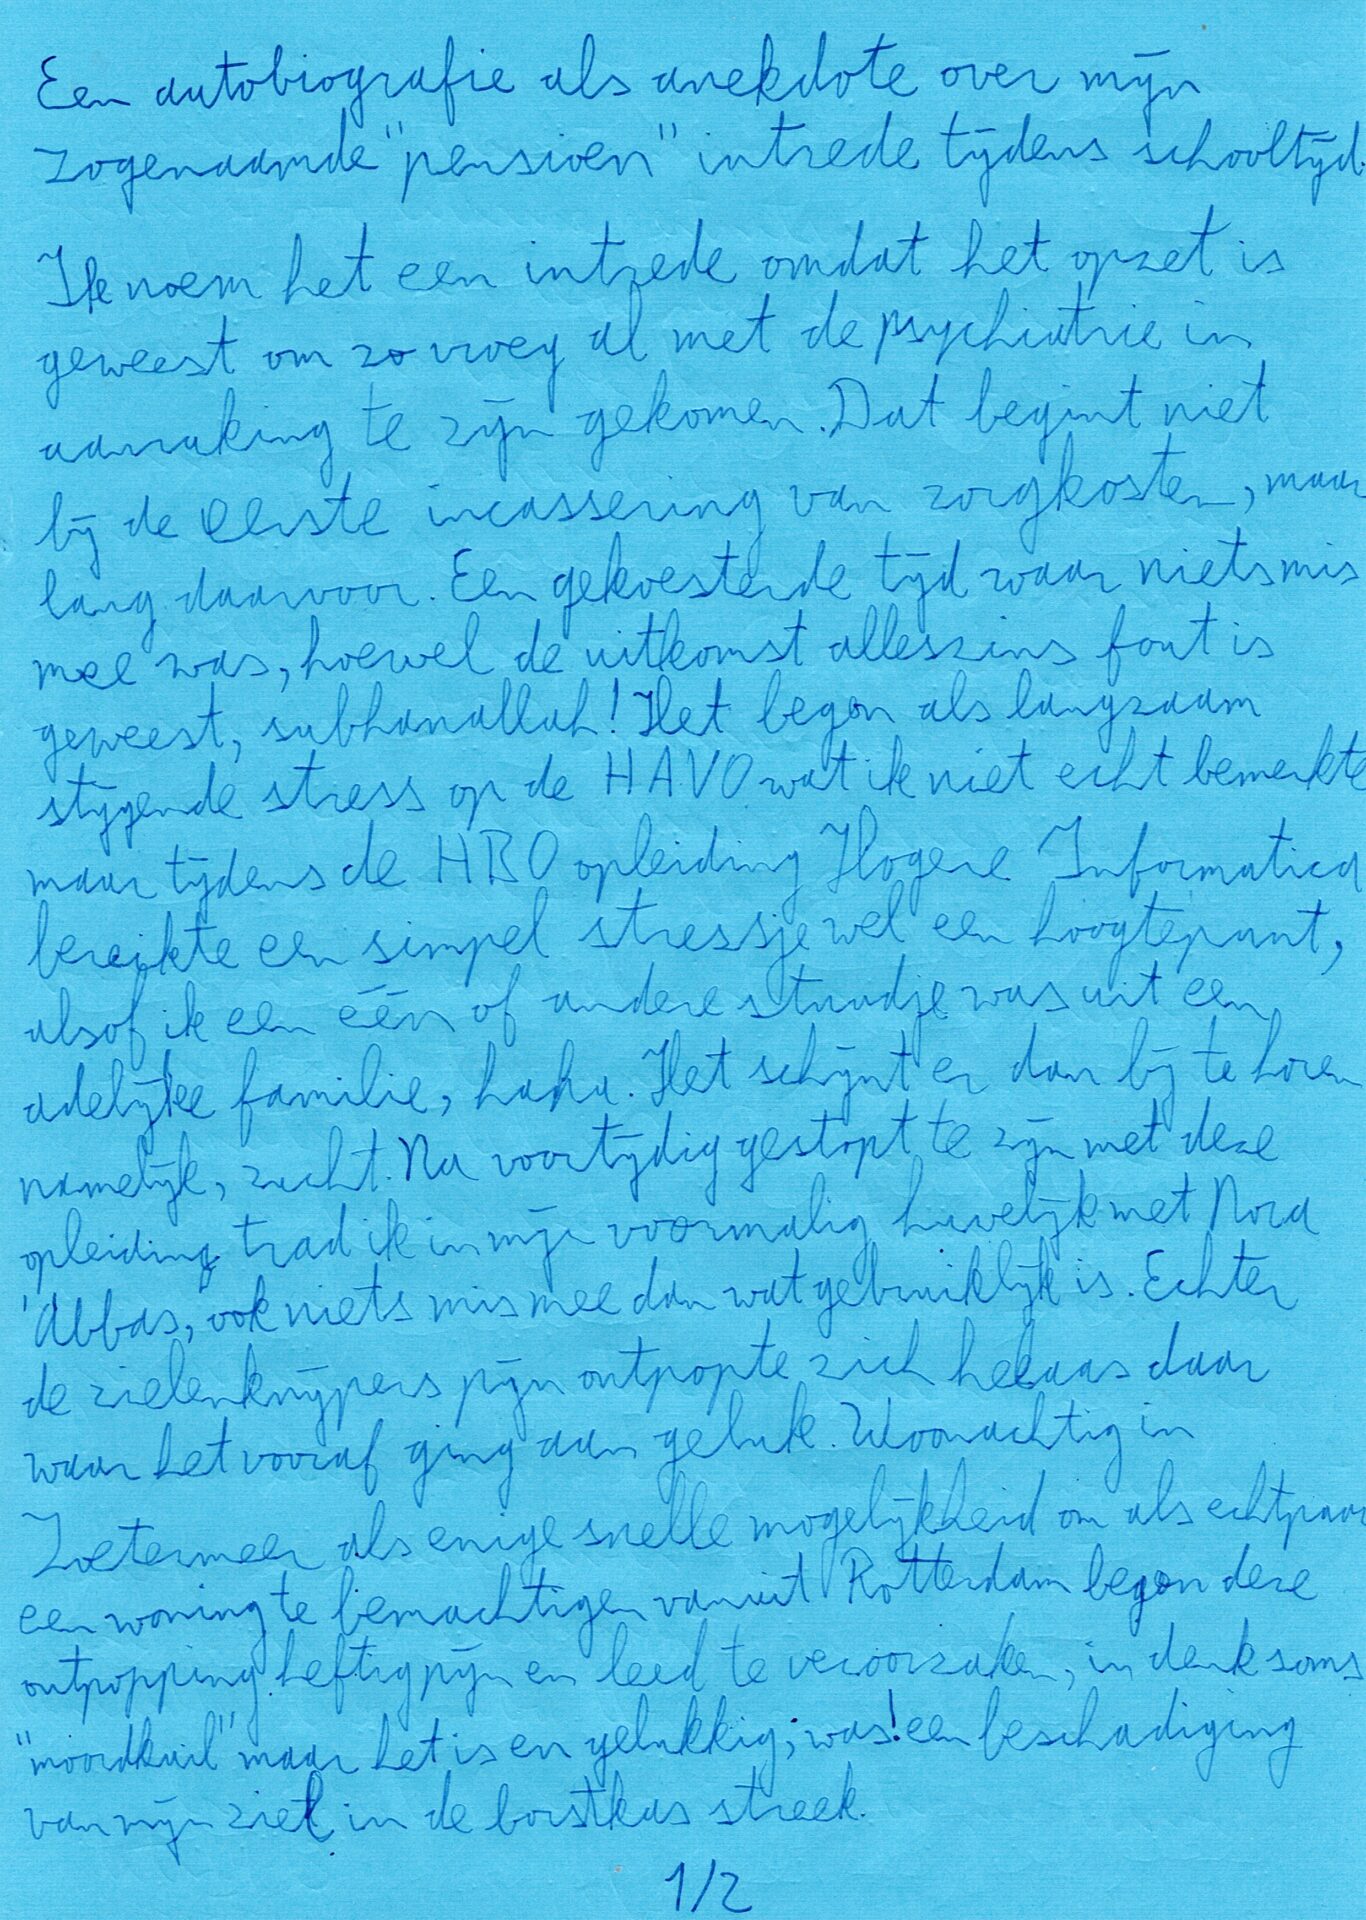 Een autobiografie als anekdote over mijn
zogenaamde "pensioen" intrede tijdens schooltijd.
Ik noem het een intrede omdat het opzet is
geweest om zo vroeg al met de psychiatrie in
aanraking te zijn gekomen. Dat begint niet
bij de eerste incassering van zorgkosten, maar
lang daarvoor. Een gekoesterde tijd waar niets mis
mee was, hoewel de uitkomst alleszins fout is
geweest, subhanallah! Het begon als langzaam
stijgende stress op de HAVO wat ik niet echt bemerkte
maar tijdens de HBO opleiding Hogere Informatica
bereikte een simpel stressje wel een hoogtepunt,
alsof ik een één of andere stuudje was uit een
adelijke familie, haha. Het schijnt er dan bij te horen
namelijk, zucht. Na voortijdig gestopt te zijn met deze
opleiding trad ik in mijn voormalig huwelijk met Nora
'Abbas, ook niets mis mee dan wat gebruiklijk is. Echter
de zielenknijpers pijn ontpopte zich helaas daar
waar het vooraf ging aan geluk. Woonachtig in
Zoetermeer als enige snelle mogelijkheid om als echtpaar
een woning te bemachtigen vanuit Rotterdam begon deze
ontpopping heftig pijn en leed te veroorzaken, in denk soms
"moordkuil" maar het is en gelukkig; was! een beschadiging
van mijn ziel in de borstkas streek.
1/2